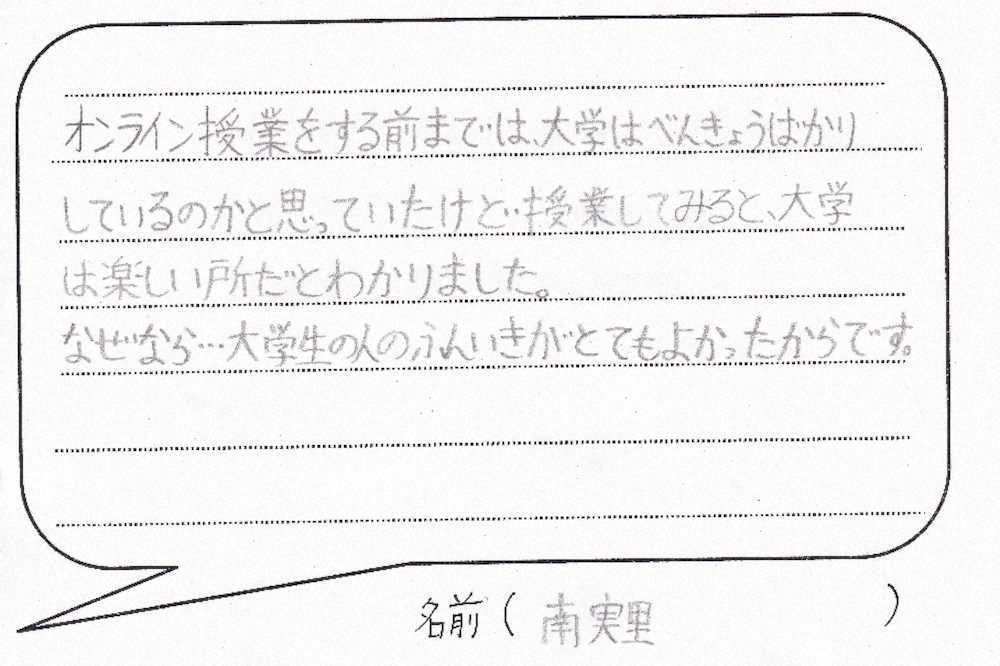 オンライン授業をする前までは、大学はべんきょうばかり
しているのかと思っていたけど、授業してみると、大学
は楽しい所だとわかりました。
なぜなら…大学生の人のふんいきがとてもよかったからです。
名前（南実里）